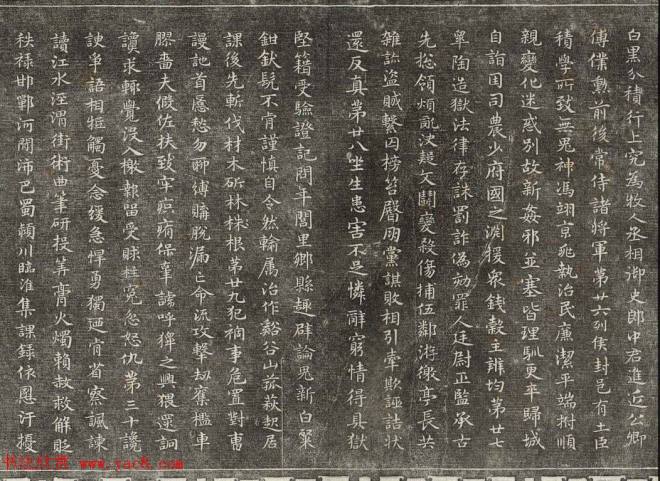 白黑分積行上究為牧人丞相御史郎中君進近公卿
傅僕勳前後常侍諸將軍第廿六列侯封邑有土臣
積學所致無鬼神馮翊京兆執治民廉潔平端拊順
親變化迷惑別故新姦邪並塞皆理馴更卒歸城
自詣因司農少府國之淵援眾錢穀主辨均第廿七
皋陶造獄法律存誅罰詐偽劾罪人廷尉正監承古
先總領煩亂決疑文鬭變殺傷捕伍鄰游徼亭長共
雜診盜賊繫囚榜笞臀朋黨謀敗相引牽欺誣詰狀
還反真第廿八坐生患害不足憐辭窮情得具獄
堅籍受驗證記問年閭里鄉縣趣辟論鬼新白粲
鉗釱髡不肯謹慎自令然輸屬治作谿谷山菰萩起居
課後先斬伐材木斫株根第廿九犯禍事危置對曹
謾訑首匿愁勿聊縛購脫漏亡命流攻擊劫奪檻車
膠嗇夫假佐扶致牢疻痏保辜謕呼獋乏興猥逮詗
讂求輒覺沒入檄報留受賕枉冤忿怒仇第三十讒
諛爭語相觝觸憂念緩急悍勇獨迺肯省察諷諫
讀江水涇渭街術曲筆研投筭膏火燭賴赦救解貶
秩祿邯鄲河間沛巴蜀潁川臨淮集課錄依恩汙擾
书法欣赏 www.yac8.com